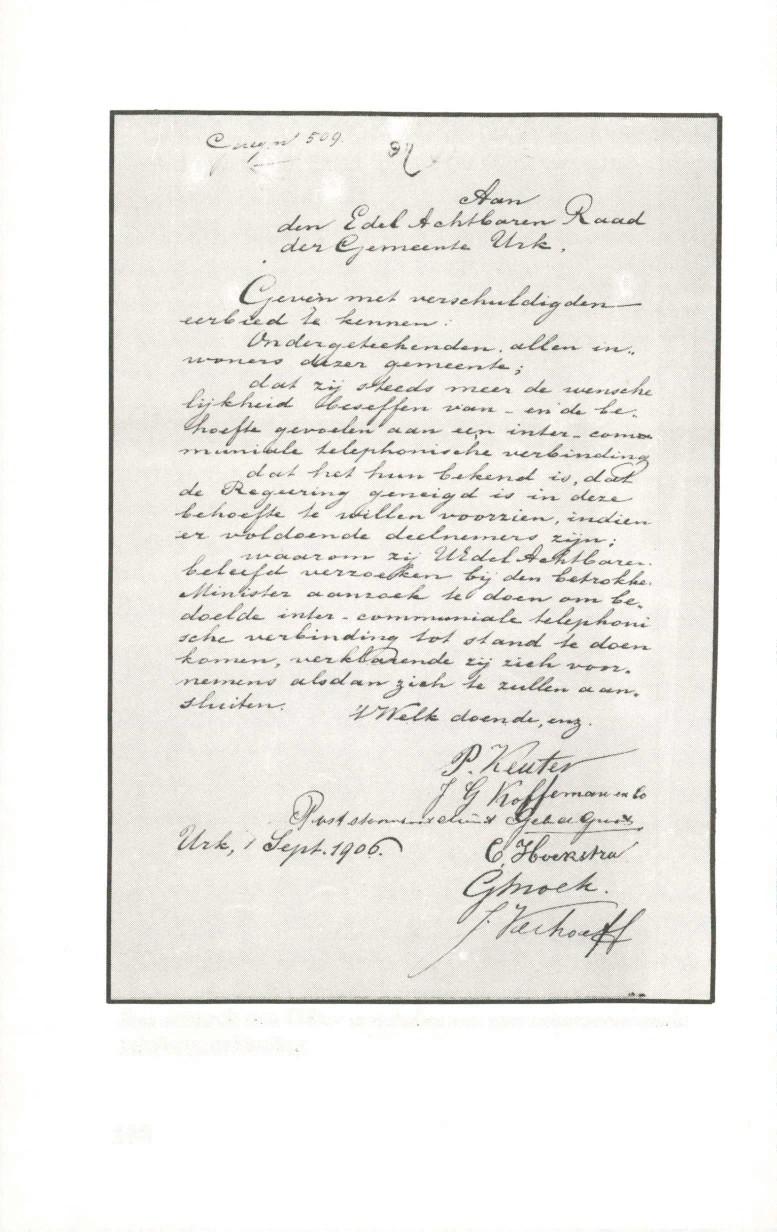 509.
Aan
den Edel Achtbaren Raad
der Gemeente Urk.
Geven met verschuldigden
eerbied te kennen:
Ondergeteekenden, allen in„
woners dezer gemeente;
dat zij steeds meer de wensche
lijkheid beseffen van - en de be„
hoefte gevoelen aan een inter-com
muniale telephonische verbinding
dat het hun bekend is, dat
de Regeering geneigd is in deze
behoefte te willen voorzien, indien
er voldoende deelnemers zijn;
waarom zij UEdel Achtbaren
beleefd verzoeken bij den betrokke.
Minister aanzoek te doen om be„
doelde inter-communiale telephoni
sche verbinding tot stand te doen
komen, verklarende zij zich voor„
nemens alsdan zich te zullen aan„
sluiten.
't Welk doende, enz.
P. Keuter
J G Koffeman en Co
Urk, 1 Sept. 1906.
C. Hoekstra
J. Verhoeff